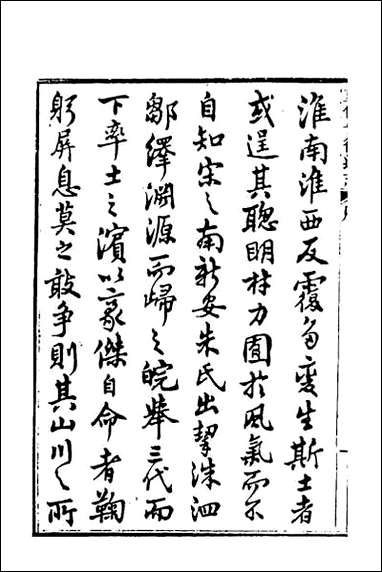 淮南淮西反覆多變生斯土者
或逞其聰明材力囿於風氣而不
自知宋之南新安朱氏出挈洙泗
鄒繹淵源而歸之皖舉三代而
下率土之濱以豪傑自命者鞠
躬屏息莫之敢爭則其山川之所